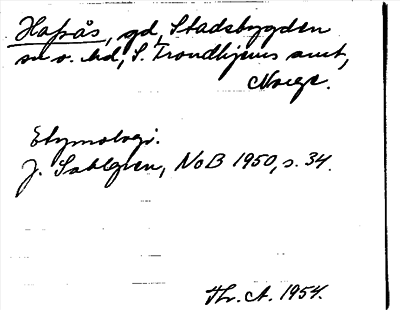 Hafrås, gd, Stadsbygden
sn o. hd, S. Trondhjems amt,
Norge.
Etymologi.
J. Sahlgren, NoB 1950, s. 34.
Thr. A. 1954.